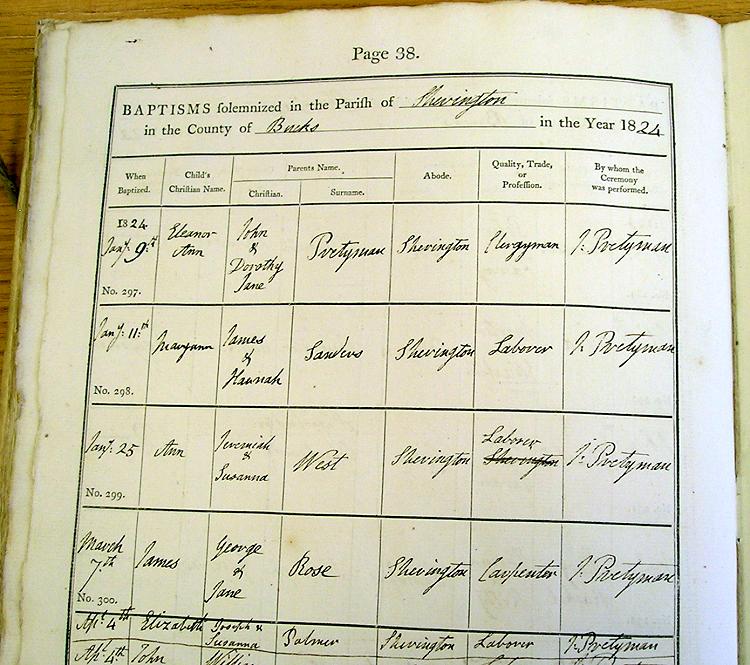 Page 38.
BAPTISMS solemnized in the Parish of Shevington
in the County of Bucks in the Year 1824
When Baptized. Child's Christian Name. Parents Name. Christian. Surname. Abode. Quality, Trade, or Profession. By whom the Ceremony was performed.
1824
Jany. 9th Eleanor Ann John & Dorothy Jane Pretyman Shevington Clergyman J. Pretyman
No. 297.
Jany. 11th Maryann James & Hannah Sanders Shevington Laborer J. Pretyman
No. 298.
Jany. 25 Ann Jeremiah & Susanna West Shevington Laborer Shevington J. Pretyman
No. 299.
March 7th James George & Jane Rose Shevington Carpenter J. Pretyman
No. 300.
Apl. 4th Elizabeth Joseph & Susanna Palmer Shevington Laborer J. Pretyman
Apl. 4th John